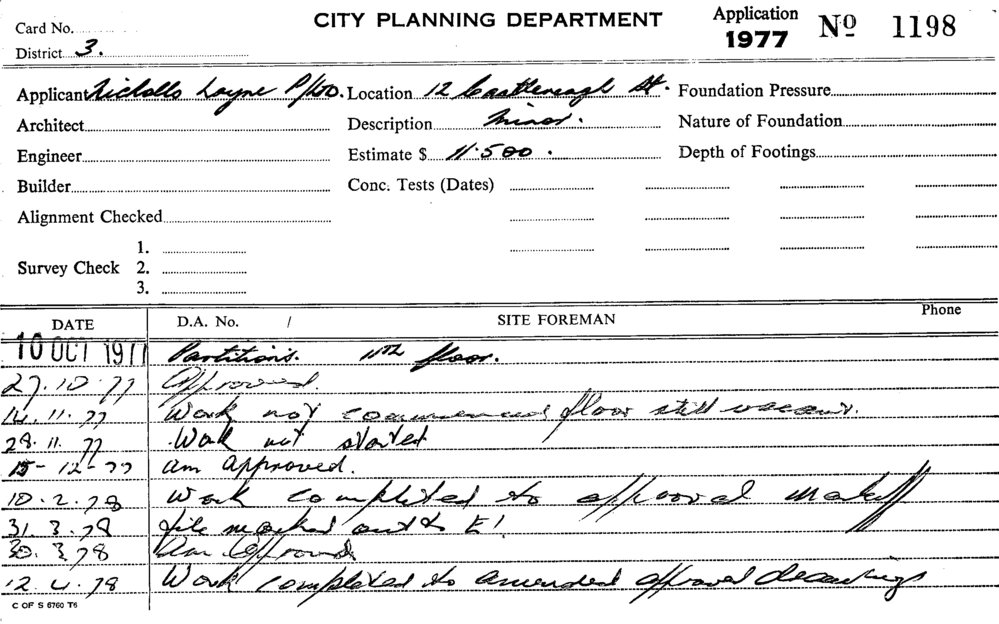 Card No.
CITY PLANNING DEPARTMENT
Application
1977
Nº 1198
District 3.
Applicant Nicholls Layne P/L. Location 12 Castlereagh St. Foundation Pressure
Architect Description Minor. Nature of Foundation
Engineer Estimate $ 11.500. Depth of Footings
Builder Conc. Tests (Dates)
Alignment Checked
1.
Survey Check 2.
3.
DATE D.A. No. / SITE FOREMAN Phone
10 OCT 1977 Partitions. 11th floor.
27.10.77 Approved.
14.11.77 Work not commenced, floor still vacant.
28.11.77 Work not started
15-12-77 am approved.
10.2.78 Work completed to approval
31.3.78 file marked out to
30.3.78 Am Approved
12.4.78 Work completed to amended approval drawings
C OF S 6760 T6